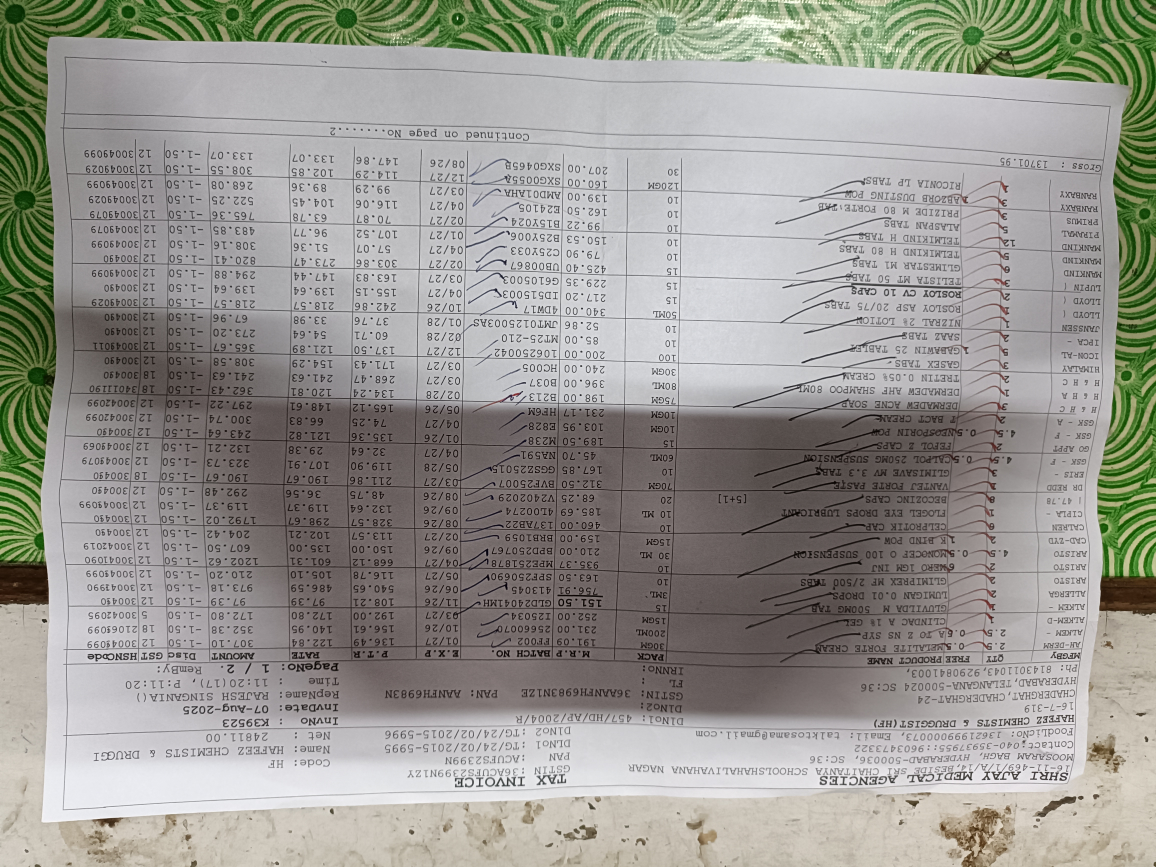 SHRI AJAY MEDICAL AGENCIES
16-11-469/1/A/14, BESIDE SRI CHAITANYA SCHOOLSHALIVAHANA NAGAR
MOOSARAM BAGH, HYDERABAD-500036, SC:36
Contact:040-35937955::9603473347
FoodLicNo: 13621999000073, Email: talktosama@gmail.com
TAX INVOICE
GSTIN :36ACUFS2399N1ZY
PAN : ACUFS2399N
DLNO1 :TG/24/02/2015-5995
DLNO2 :TG/24/02/2015-5996
Code: HF
Name: HAFEEZ CHEMISTS & DRUGGI
Net : 24811.00
HAFEEZ CHEMISTS & DRUGGIST(HF)
16-7-319
CHADERGHAT, CHADERGHAT-24
HYDERABAD, TELANGANA-500024 SC:36
Ph: 8143011043, 9290841003,
DLNO1: 457/HD/AP/2004/R
DLNO2:
GSTIN: 36AANFH6983N1ZE PAN: AANFH6983N
FL:
IRNNO:
InvNo : K39523
InvDate : 07-Aug-2025
RepName: RAJESH SINGANIA()
Time : 11:20(17), P:11:20
PageNo: 1 / 2. RemBy:
MFGBY QTY FREE PRODUCT NAME PACK M.R.P BATCH NO. E.X.P P.T.R. RATE AMOUNT Disc GST HSNCode
AN-DERM 2.5 0.5 MELALITE FORTE CREAM 30GM 191.09 01/27 136.49 122.84 307.10 -1.50 12 30049099
ALKEM - 2.5 0.5 A TO Z NS SYP 200ML 231.00 56660070 10/26 156.61 140.95 352.38 -1.50 18 21069099
ALKEM-D 1 CLINDAC A 1% GEL 15 252.00 I25034 03/27 192.00 172.80 172.80 -1.50 5 30042095
ALKEM - 1 GLUVILDA M 500MG TAB 15 151.50 GLD2404IMH 11/26 108.21 97.39 97.39 -1.50 12 300490
ALLERGA 2 LUMIGAN 0.01 DROPS 3ML 756.91 413045 06/26 540.65 486.59 973.18 -1.50 12 30049990
ARISTO 2 GLIMIPREX MF 2/500 TABS 10 163.50 SPF250690 05/27 116.78 105.10 210.20 -1.50 12 30049099
ARISTO 2 MERO 1GM INJ 10 935.37 MPF251878 04/27 668.12 601.31 1202.62 -1.50 12 30041090
ARISTO 4.5 0.5 MONOCEF O 100 SUSPENSION 30 ML 210.00 BPF250767 09/26 150.00 135.00 607.50 -1.50 12 30042019
CAD-ZYD 2 K BIND POW 15GM 159.00 BRH1059 02/27 113.57 102.21 204.42 -1.50 12 300490
CALREN 6 CELPROTIK CAP 10 460.00 137AB22 08/26 328.57 298.67 1792.02 -1.50 12 300490
CIPLA - 1 FLOGEL EYE DROPS LUBRICANT 10 ML 185.69 4L00274 09/26 132.64 119.37 119.37 -1.50 12 30049099
( 47.78 8 BECOZINC CAPS [5+1] 68.25 V2402029 08/26 48.75 36.56 292.48 -1.50 12 300490
DR REDD 1 VANTEJ FORTE PASTE 70GM 312.50 BVF25007 03/27 211.86 190.67 190.67 -1.50 18 300490
ERIS - 3 GLIMISAVE MV 3.3 TABS 10 167.85 GGSZ25015 05/28 119.90 107.91 323.73 -1.50 12 30049079
GSK - F 4.5 0.5 CALPOL 250MG SUSPENSION 60ML 45.70 NA591 04/27 32.64 29.38 132.21 -1.50 12 30049069
GO APPT 2 FEPOL Z CAPS 15 189.50 MZ38 01/26 135.36 121.82 243.64 -1.50 12 300490
GSK - F 4.5 0.5 NEOSPORIN POW 10GM 103.95 EB28 04/27 74.25 66.83 300.74 -1.50 12 30042099
GSK - A 2 T BACT CREAM 10GM 231.17 HF6M 05/26 165.12 148.61 297.22 -1.50 12 30042099
H & H C 3 DERMADEW ACNE SOAP 75GM 198.00 B213 02/28 134.24 120.81 362.43 -1.50 18 34011190
H & H A 1 DERMADEW AHF SHAMPOO 80ML 80ML 396.00 B037 03/27 268.47 241.63 241.63 -1.50 18 300490
H & H C 2 TRETIN 0.05% CREAM 30GM 240.00 HC005 03/27 171.43 154.29 308.58 -1.50 12 300490
HIMALAY 3 GASEX TABS 100 200.00 106250042 12/27 137.50 121.89 365.67 -1.50 12 30049011
ICON-AL 5 1 GABAWIN 25 TABLET 10 85.00 MT25-210 03/27 60.71 54.64 273.20 -1.50 12 300490
IPCA - 2 SAAZ TABS 10 52.86 JMT012503AS 01/28 37.76 33.98 67.96 -1.50 12 300490
JANSSEN 1 NIZRAL 2% LOTION 50ML 340.00 4DW17 10/26 242.86 218.57 218.57 -1.50 12 30049029
LLOYD ( 1 ROSLOY ASP 20/75 TABS 15 217.20 ID515003 04/27 155.15 139.64 139.64 -1.50 12 300490
LLOYD ( 2 ROSLOY CV 10 CAPS 15 229.35 GE105003 04/27 163.83 147.44 294.88 -1.50 12 30049099
LUPIN ( 3 TELISTA MT 50 TABS 15 425.40 UB00867 02/27 303.86 273.47 820.41 -1.50 12 300490
MANKIND 6 GLIMESTAR M1 TABS 10 79.90 C25Z5033 04/27 57.07 51.36 308.16 -1.50 12 30049099
MANKIND 5 TELMIKIND H 80 TABS 10 150.53 B2XY006 01/27 107.52 96.77 483.85 -1.50 12 30049079
MANKIND 12 TELMIKIND H TABS 10 99.22 B15Y024 02/27 70.87 63.78 765.36 -1.50 12 30049079
PIRAMAL 5 ALASPAN TABS 10 162.50 BE24105 04/27 116.06 104.45 522.25 -1.50 12 30049029
PRIMUS 3 PRIZIDE M 80 FORTE TAB 10 139.00 AMD01AHA 03/27 99.29 89.36 268.08 -1.50 12 30049099
RANBAXY 3 ABZORB DUSTING POW 120GM 160.00 SXG0055A 12/27 114.29 102.85 308.55 -1.50 12 30049029
RANBAXY 1 RICONIA LP TABS 30 207.00 SXG0465B 08/26 147.86 133.07 133.07 -1.50 12 30049099
Gross : 13701.95
Continued on page No.......2